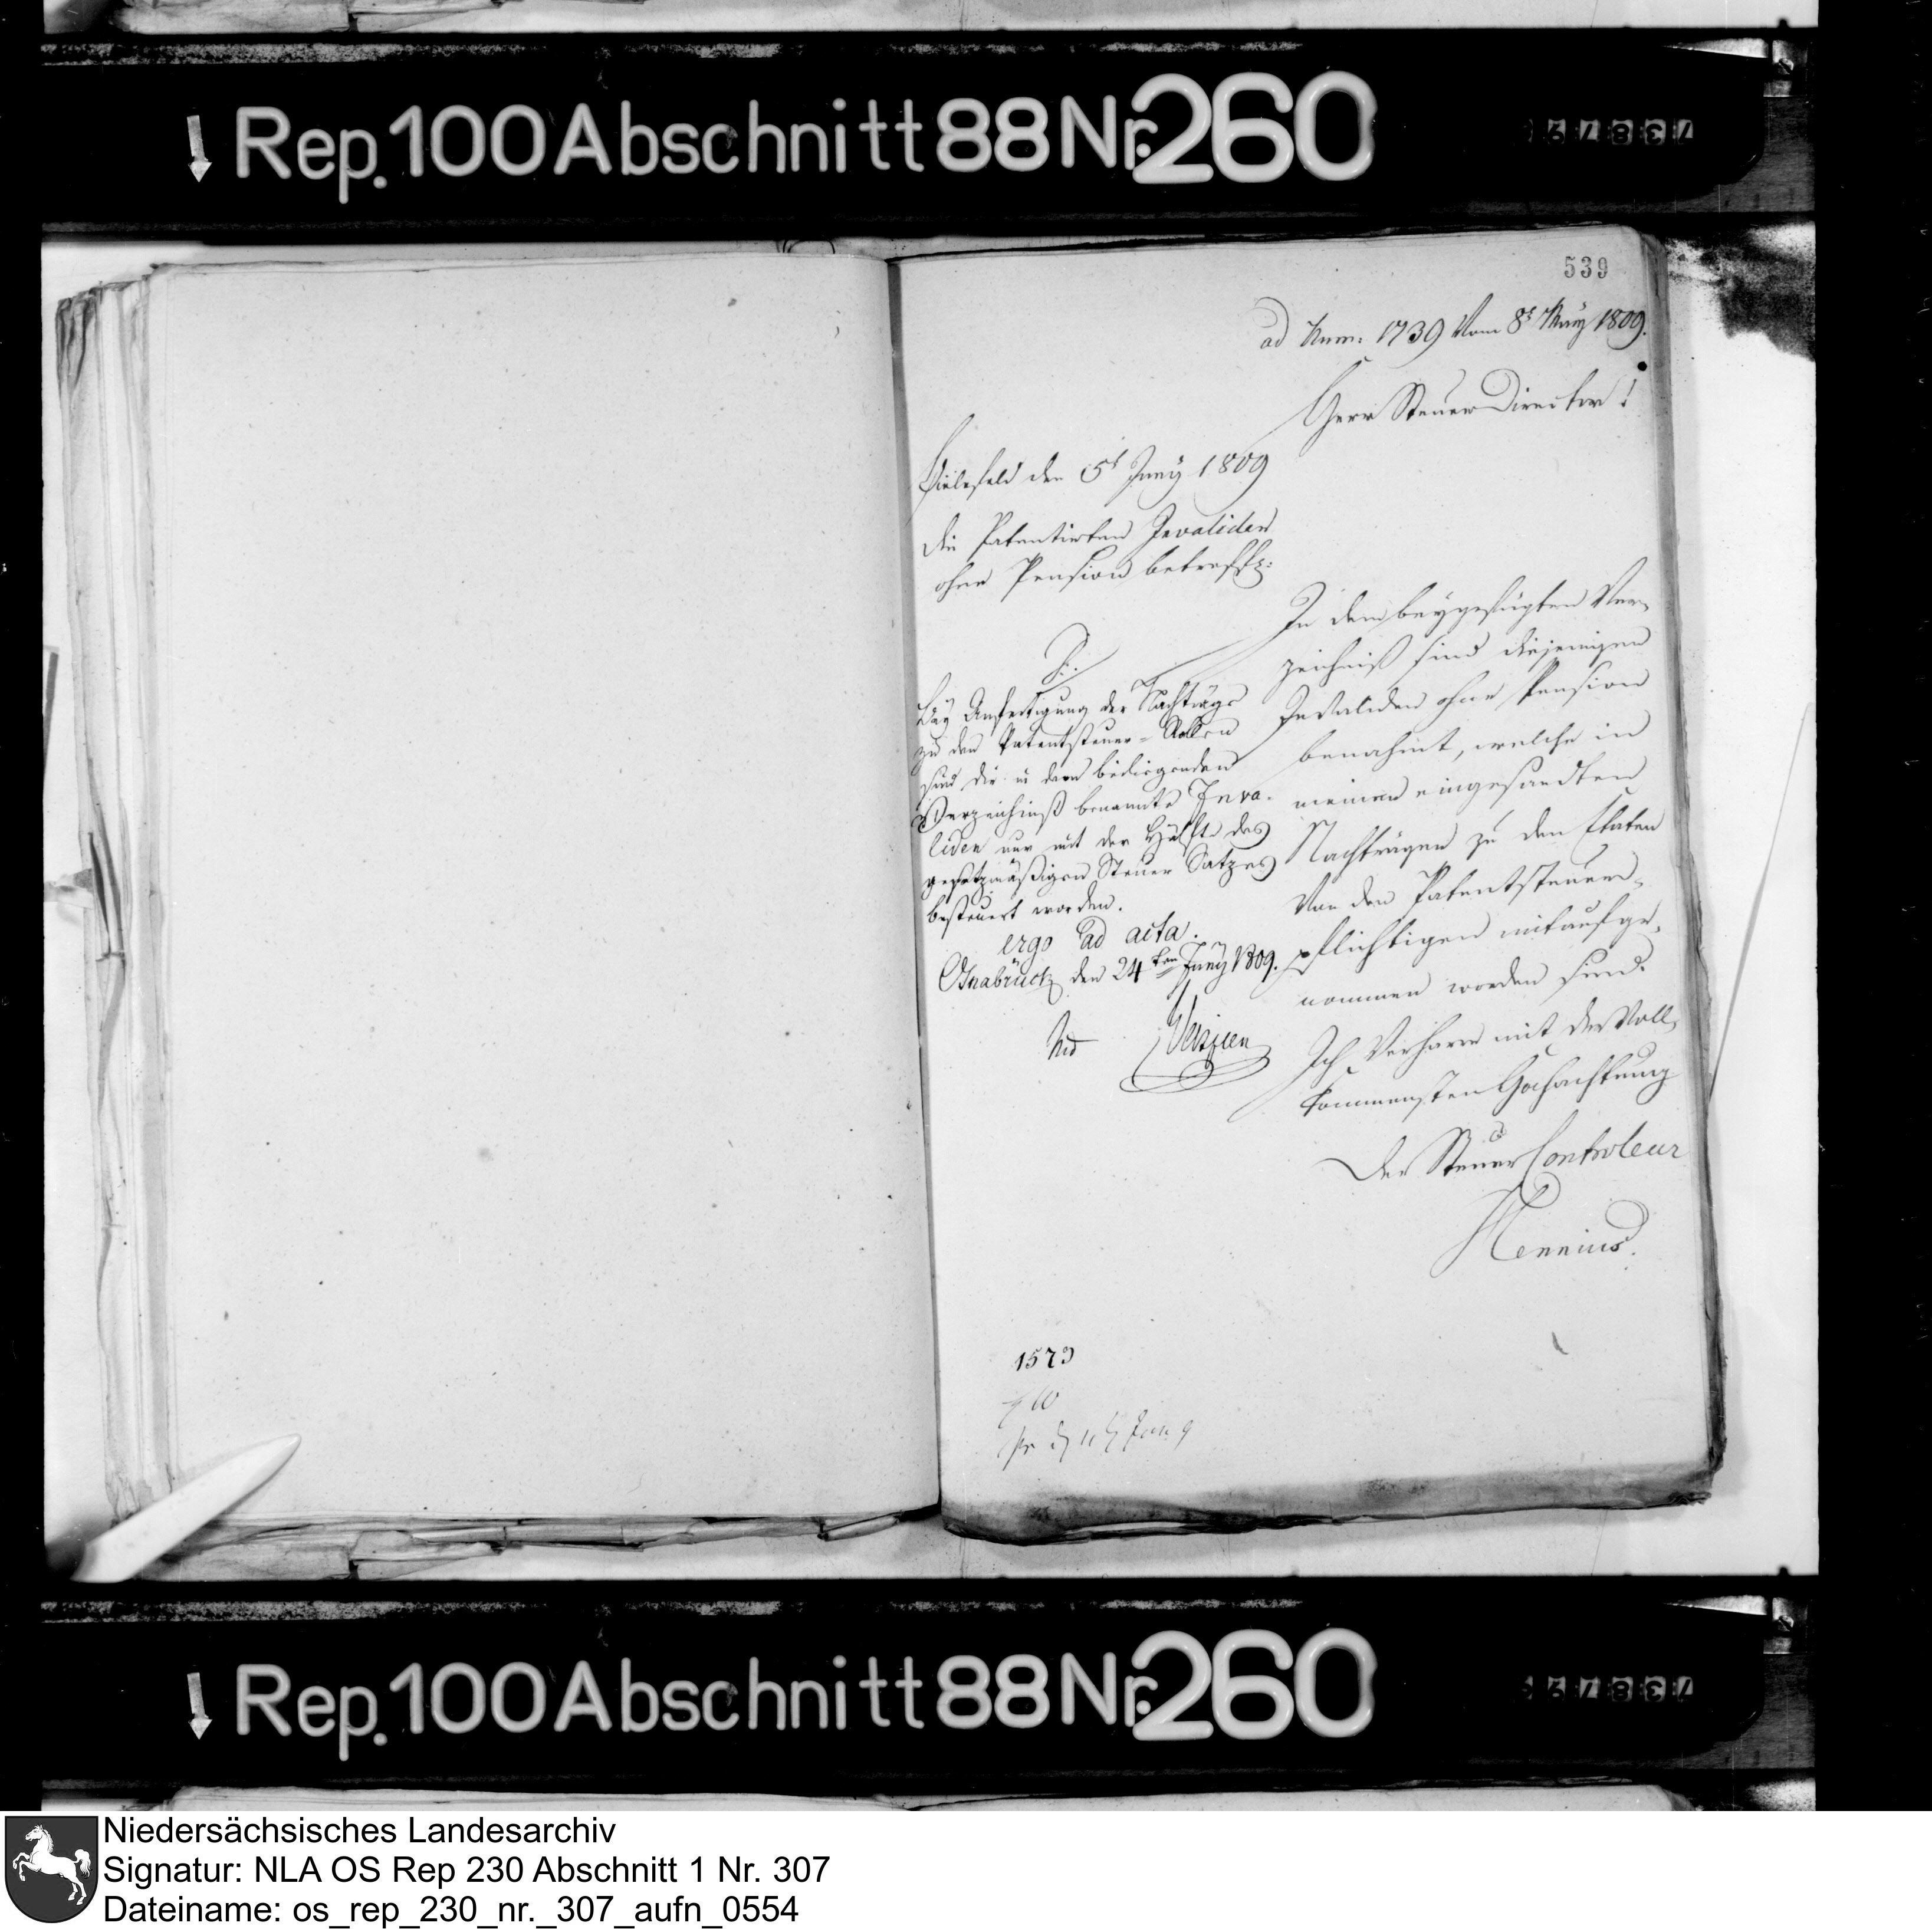 Rep. 100 Abschnitt 88 Nr. 260
539
ad Num: 1739 vom 8t May 1809.
Herr Steuer Director!
Bielefeld den 5t Juny 1809
die Patentirten Invaliden
ohne Pension betreffd:
In dem beygefügten Ver,
zeichniß sind diejenigen
Invaliden ohne Pension
benahmt, welche in
meinen eingesandten
Nachträgen zu den Etaten
von den Patentsteuer,
pflichtigen mitaufge,
nommen worden sind.
Ich verharre mit der Voll,
kommensten Hochachtung
Der Steuer Controleur
Hennius.
Bey Anfertigung der Nachträge
zu den Patentsteuer-Rollen
sind die in dem beiliegenden
Verzeichniß benannte Inva-
liden nur mit der Hälfte des
gesetzmäßigen Steuer Satzes
besteuert worden.
ergo ad acta.
Osnabrück den 24ten Juny 1809.
1573
Rep. 100 Abschnitt 88 Nr. 260
Niedersächsisches Landesarchiv
Signatur: NLA OS Rep 230 Abschnitt 1 Nr. 307
Dateiname: os_rep_230_nr._307_aufn_0554